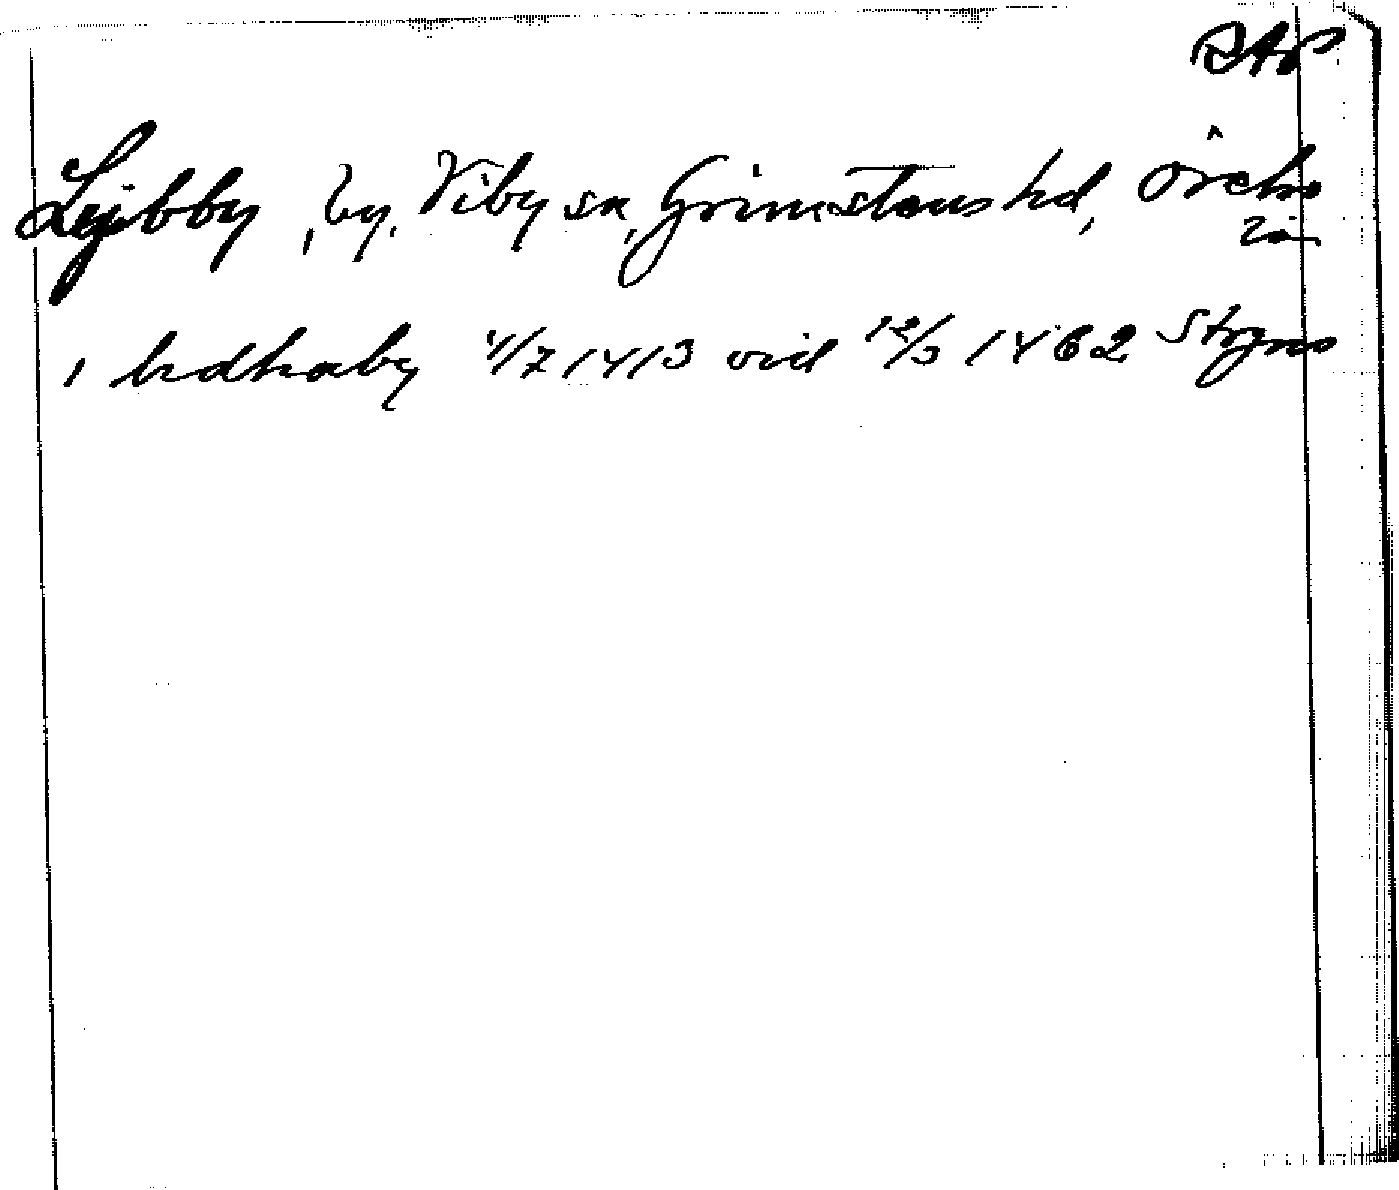 RAP
Lybby, by, Viby sn, Grimstens hd, Örebro
län
i lydhaby 4/7 1413 vid 12/3 1462 Strgns